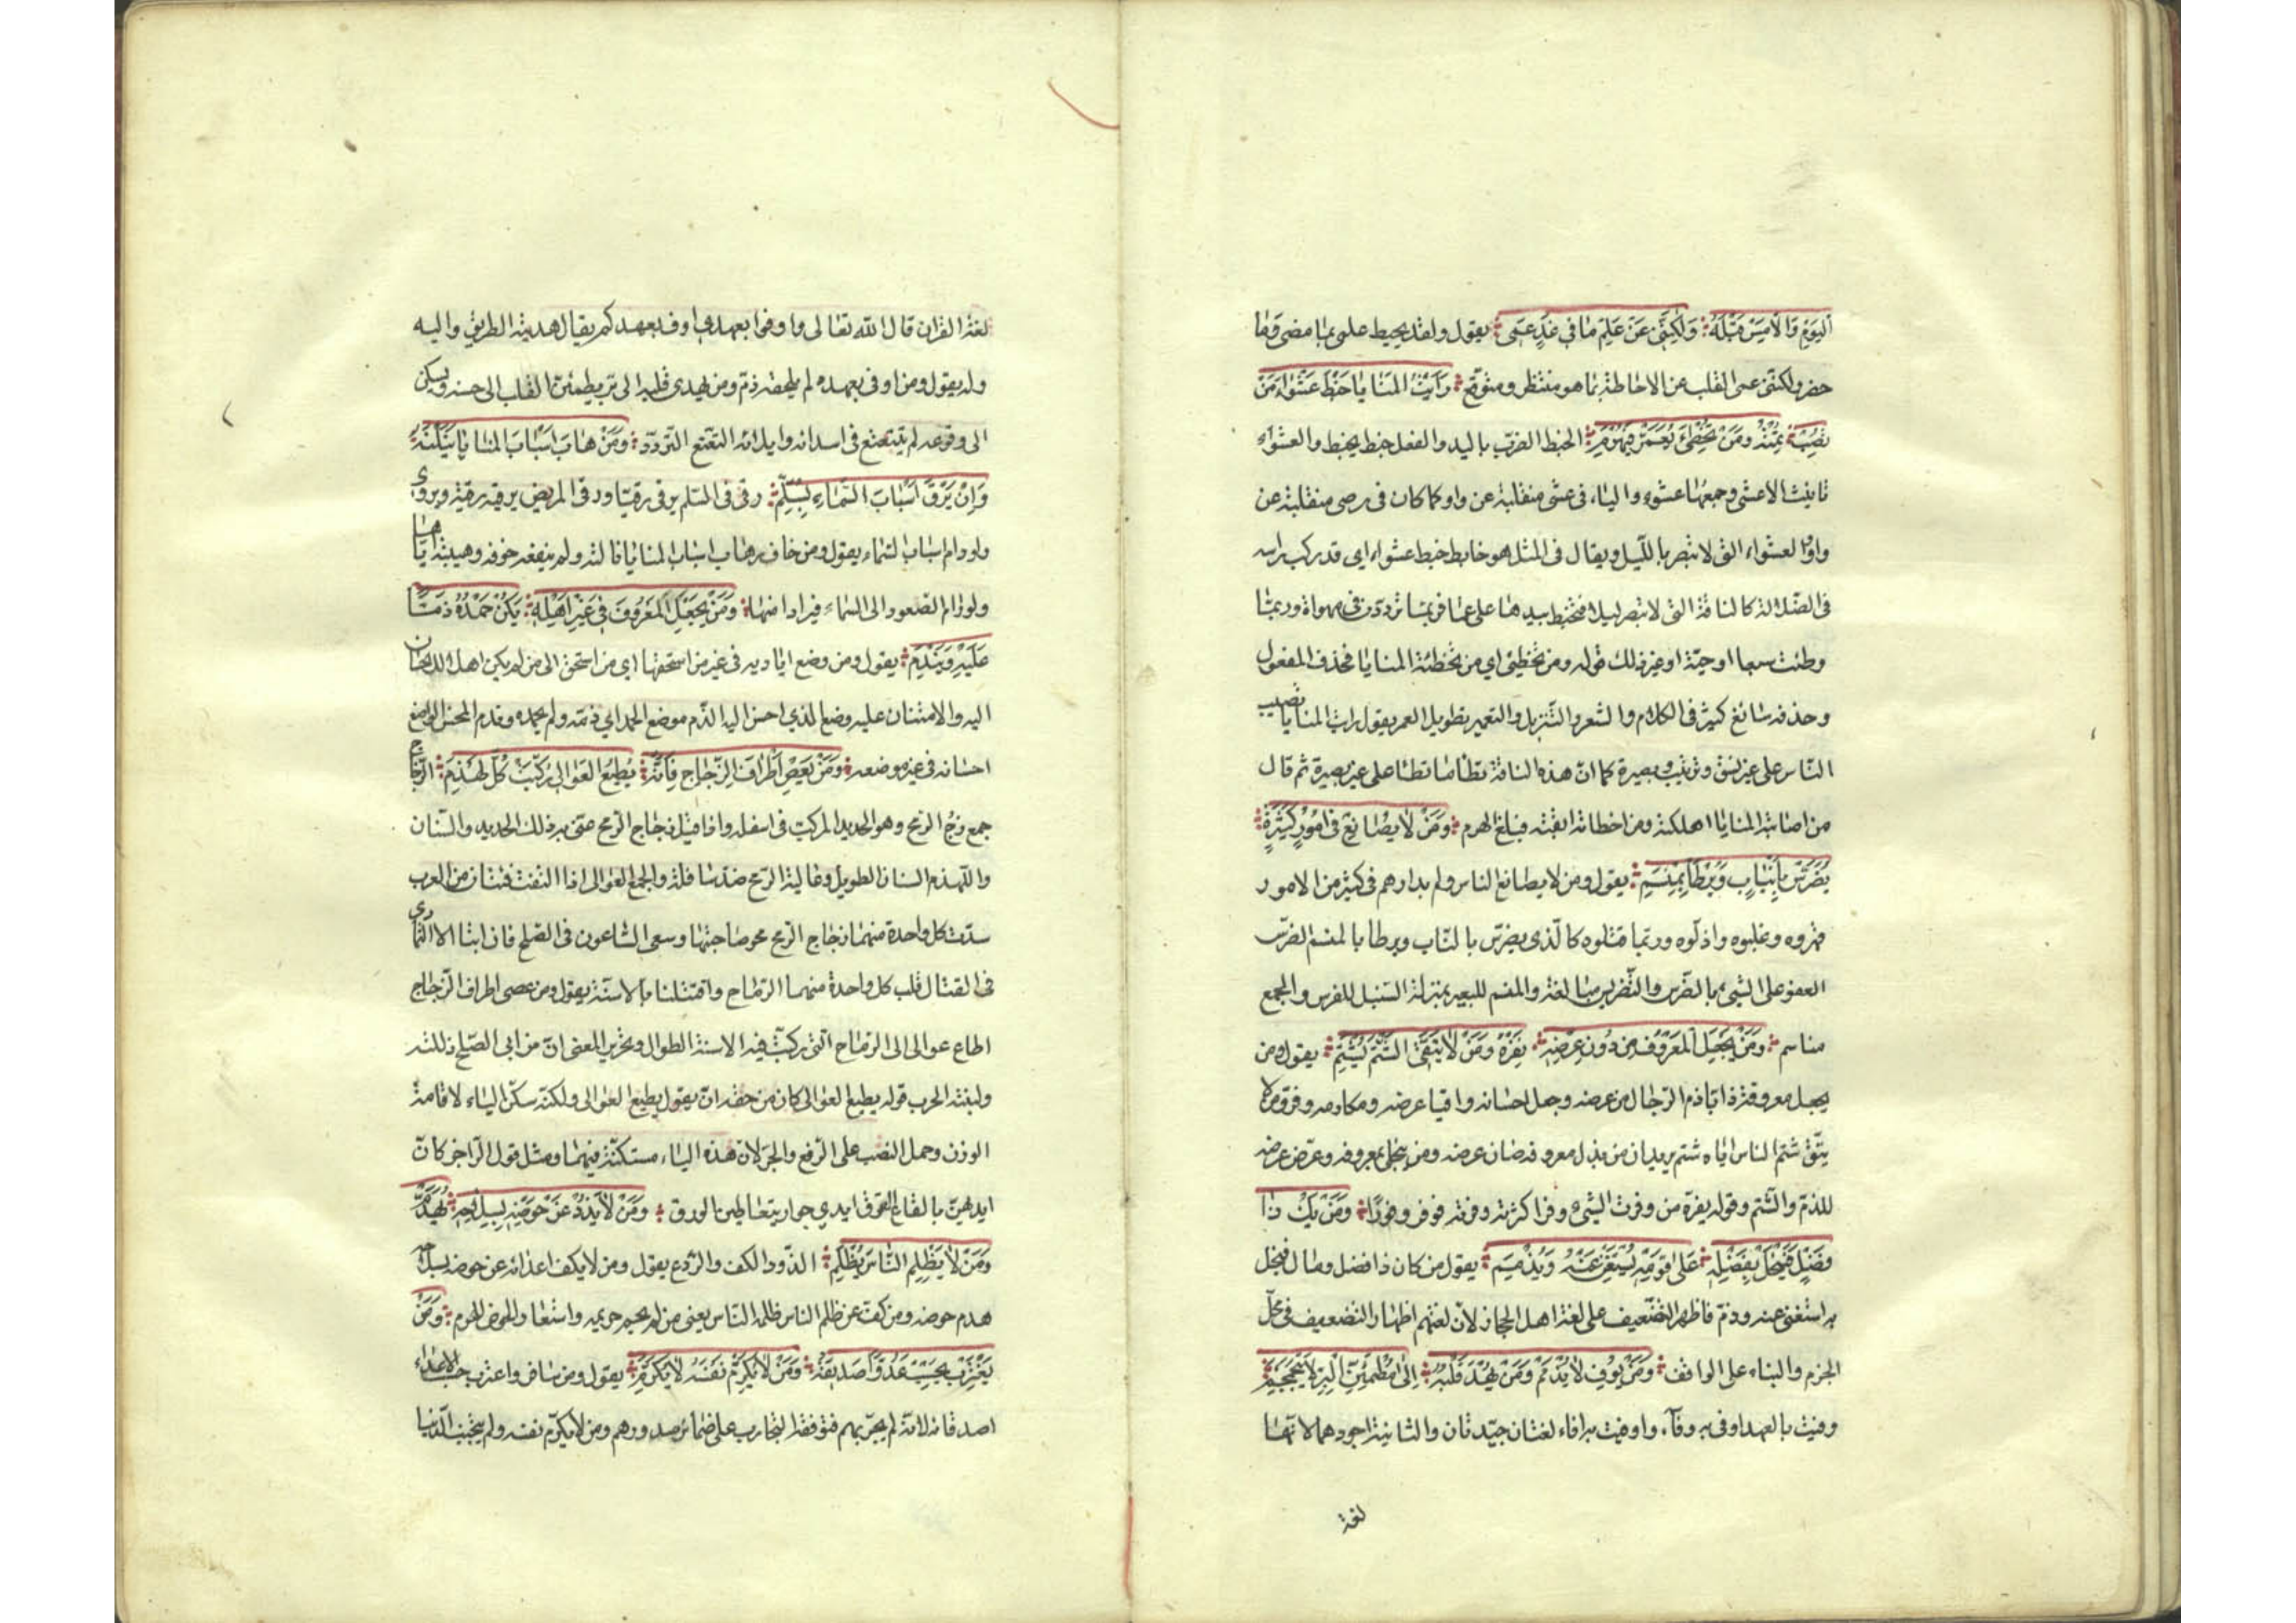 اليَوْمِ وَالأمْسِ قَبْلَهُ وَلٰكِنَّنِي عَنْ عِلْمِ مَا فِي غَدٍ عَمِي يقول ولقد يحيط علمي بما مضى وما
حضر ولكننى عمى القلب عن الاحاطة بما هو منتظر ومتوقع رَأيْتُ المَنَايَا خَبْطَ عَشْوَاءَ مَنْ
تُصِبْ تُمِتْهُ وَمَنْ تُخْطِئْ يُعَمَّرْ فَيَهْرَمِ الخبط الضرب باليد والفعل خبط يخبط والعشواء
تانيث الاعشى وجمعها عشو والياء فى عشى منقلبة عن واو كما كان فى رضى منقلبة عن
واو العشواء التى لا تبصر بالليل ويقال فى المثل هو خابط خبط عشواء اى قد ركب راسه
فى الضلالة كالناقة التى لا تبصر ليلا فتخبط بيديها على عمى فربما تردت فى مهواة وربما
وطئت سبعا او حية او غير ذلك قوله ومن تخطئ اي من تخطئه المنايا فحذف المفعول
وحذفه شائغ كثير فى الكلام والشعر والتنزيل والتعمير تطويل العمر يقول رايت المنايا تصيب
الناس على غير نسق وترتيب وبصيرة كما ان هذه الناقة تطأ ما تطأ على غير بصيرة ثم قال
من اصابته المنايا اهلكته ومن اخطاته ابقته فبلغ الهرم وَمَنْ لاَ يُصَانِعْ فِي أُمُورٍ كَثِيرَةٍ
يُضَرَّسْ بِأَنْيَابٍ وَيُوطَأْ بِمَنْسِمِ يقول ومن لا يصانع الناس ولم يدارهم فى كثير من الامور
قهروه وغلبوه واذلوه وربما قتلوه كالذى يضرس بالناب ويوطا بالمنسم الضرس
العض على الشئ بالضرس والتضريس مبالغة والمنسم للبعير بمنزلة السنبك للفرس والجمع
مناسم وَمَنْ يَجْعَلِ الْمَعْرُوفَ مِنْ دُونِ عِرْضِهِ يَفِرْهُ وَمَنْ لاَ يَتَّقِ الشَّتْمَ يُشْتَمِ يقول ومن
يجعل معروفه ذابا ذم الرجال من عرضه وجعل احسانه واقيا عرضه ومكارمه وفر ومن لا
يتق شتم الناس اياه شتم يريد ان من بذل معروفه صان عرضه ومن بخل بمعروفه وعرض عرضه
للذم والشتم وقوله يفره من وفرت الشئ وفرا كثرته ووفرته فوفر وفورا وَمَنْ يَكُ ذَا
فَضْلٍ فَيَبْخَلْ بِفَضْلِهِ عَلَى قَوْمِهِ يُسْتَغْنَ عَنْهُ وَيُذْمَمِ يقول من كان ذا فضل ومال فبخل
به استغنى عنه وذم فاظهر التضعيف على لغة اهل الحجاز لان لغتهم اظهار التضعيف فى محل
الجزم والبناء على الواقف وَمَنْ يُوفِ لاَ يُذْمَمْ وَمَنْ يُهْدَ قَلْبُهُ إِلَى مُطْمَئِنِّ الْبِرِّ لاَ يَتَجَمْجَمِ
وفيت بالعهد اوفى به وفآء واوفيت به ايفاء لغتان جيدتان والثانية اجودهما لانها
لغة
لغة القران قال الله تعالى واوفوا بعهدى اوف بعهدكم يقال هديته الطريق واليه
وله يقول ومن اوفى بعهده لم يلحقه ذم ومن يهدى قلبه الى بر يطمئن القلب الى حسنه ويسكن
الى وقوعه لم يتتعتع فى اسدائه وايلائه التعتع التردد وَمَنْ هَابَ أَسْبَابَ الْمَنَايَا يَنَلْنَهُ
وَإِنْ يَرْقَ أَسْبَابَ السَّمَاءِ بِسُلَّمِ رقى فى السلم يرقى رقيا ورقى المريض يرقيه رقية ويروى
ولو رام اسباب السماء يقول ومن خاف وهاب اسباب المنايا نالته ولم ينفعه خوفه وهيبته اياها
ولو رام الصعود الى السماء فرارا منها وَمَنْ يَجْعَلِ الْمَعْرُوفَ فِي غَيْرِ أَهْلِهِ يَكُنْ حَمْدُهُ ذَمًّا
عَلَيْهِ وَيَنْدَمِ يقول ومن وضع اياديه فى غير من استحقها اى من احسن الى من لم يكن اهلا للاحسان
اليه والامتنان عليه وضع الذي احسن اليه الذم موضع الحمد اي ذمه ولم يحمده وندم المحسن الواضع
احسانه فى غير موضعه وَمَنْ يَعْصِ أَطْرَافَ الزِّجَاجِ فَإِنَّهُ يُطِيعُ الْعَوَالِي رُكِّبَتْ كُلَّ لَهْذَمِ الزجاج
جمع زج الرمح وهو الحديد المركب فى اسفله واذا قيل زجاج الرمح عنى به ذلك الحديد والسنان
واللهذم السنان الطويل وعالية الرمح ضد سافلة والجمع العوالى اذا التقت فئتان من العرب
سددت كل واحدة منهما زجاج الرمح نحو صاحبتها وسعى الساعون فى الصلح فان ابتا الا التمادى
فى القتال قلب كل واحدة منهما الرماح واقتتلتا بالاسنة يقول ومن عصى اطراف الزجاج
اطاع عوالى الرماح التى ركبت فيه الاسنة الطوال وتحرير المعنى ان من ابى الصلح ذللته
ولينته الحرب قوله يطيع العوالى كان من حقه ان يقول يطيع العوالى ولكنه سكن الياء لاقامة
الوزن وحمل النصب على الرفع والجر لان هذه الياء مستكنة فيهما ومثل قول الراجز كان
ايديهن بالقاع القرق ايدي جوار يتعاطين الورق وَمَنْ لاَ يَذُدْ عَنْ حَوْضِهِ بِسِلاَحِهِ يُهَدَّمْ
وَمَنْ لاَ يَظْلِمِ النَّاسَ يُظْلَمِ الذود الكف والردع يقول ومن لا يكف اعدائه عن حوضه بسلاحه
هدم حوضه ومن كف عن ظلم الناس ظلمه الناس يعنى من لم يحم حريمه واستعار الحوض للحرم وَمَنْ
يَغْتَرِبْ يَحْسِبْ عَدُوًّا صَدِيقَهُ وَمَنْ لاَ يُكَرِّمْ نَفْسَهُ لاَ يُكَرَّمِ يقول ومن سافر واغترب حسب الاعداء
اصدقائه لانه لم يجربهم فتوقفه التجارب على ضمائر صدورهم ومن لا يكرم نفسه ولم يتجنب الدنيا